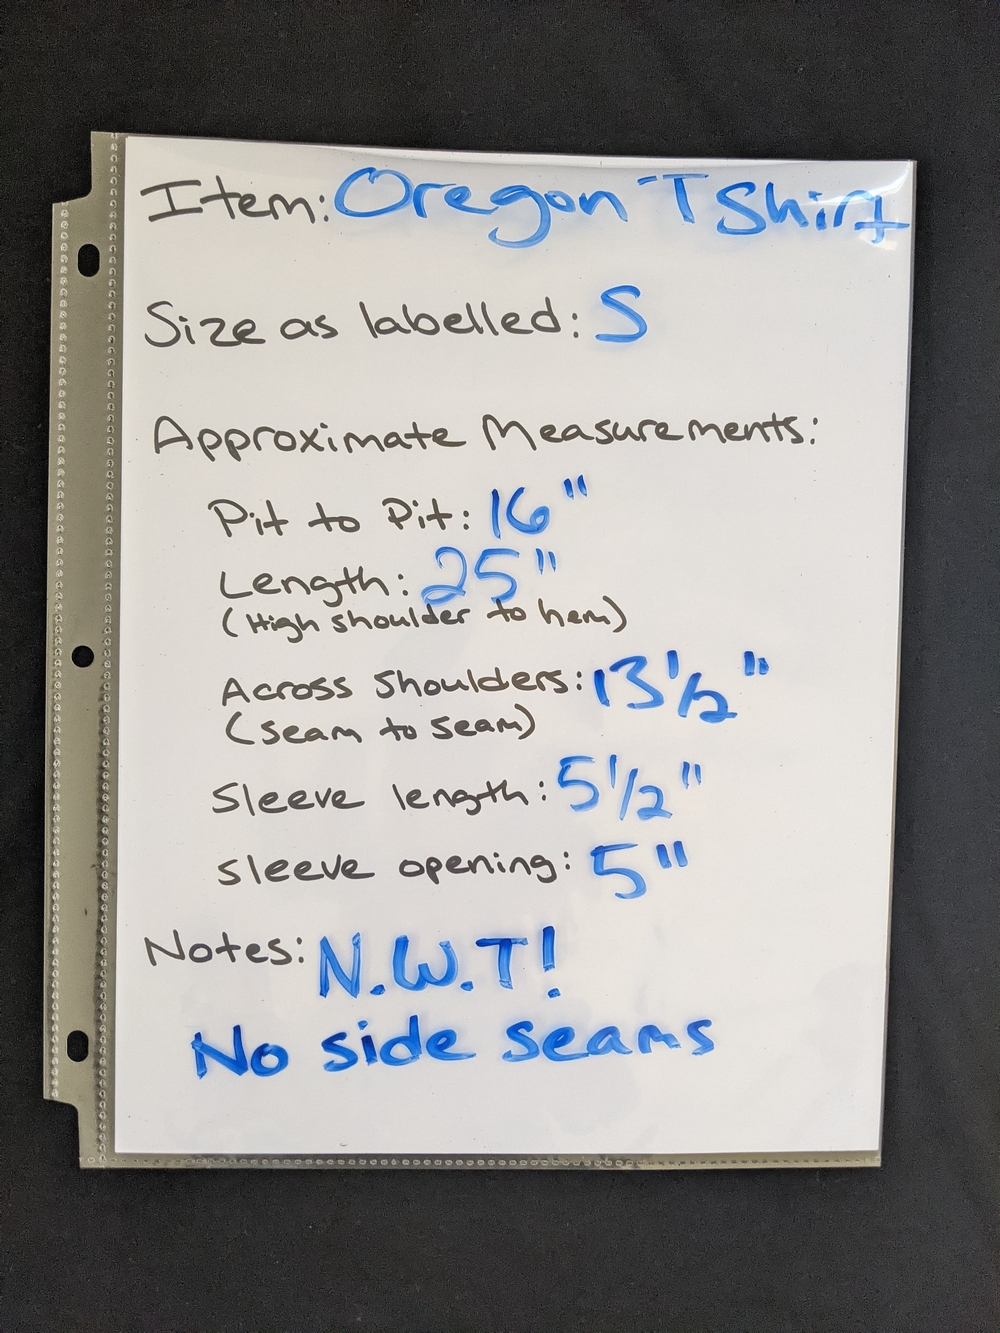 Item: Oregon T Shirt
Size as labelled: S
Approximate Measurements:
Pit to Pit: 16"
Length: 25"
(High shoulder to hem)
Across Shoulders: 13 1/2"
(seam to seam)
Sleeve length: 5 1/2"
sleeve opening: 5"
Notes: N.W.T!
No side seams